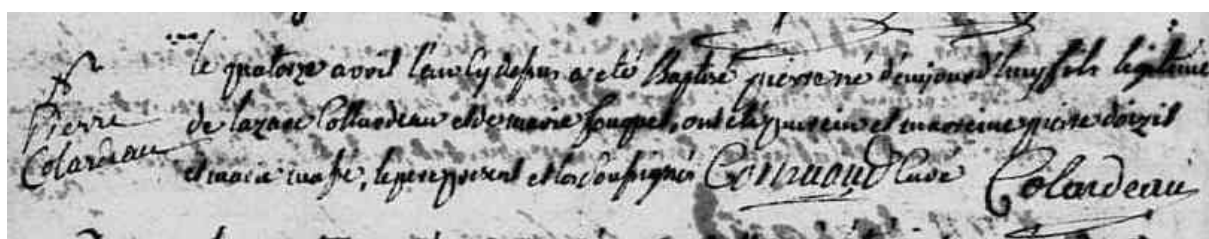 Pierre
Colardeau
le quatorze avril l'an cy dessus a eté Baptisé pierre né d'aujourd'huy fils légitime
de lazare Collardeau et de marie fouquet, ont été parein et mareine pierre
et marie le pere present et Curé Colardeau